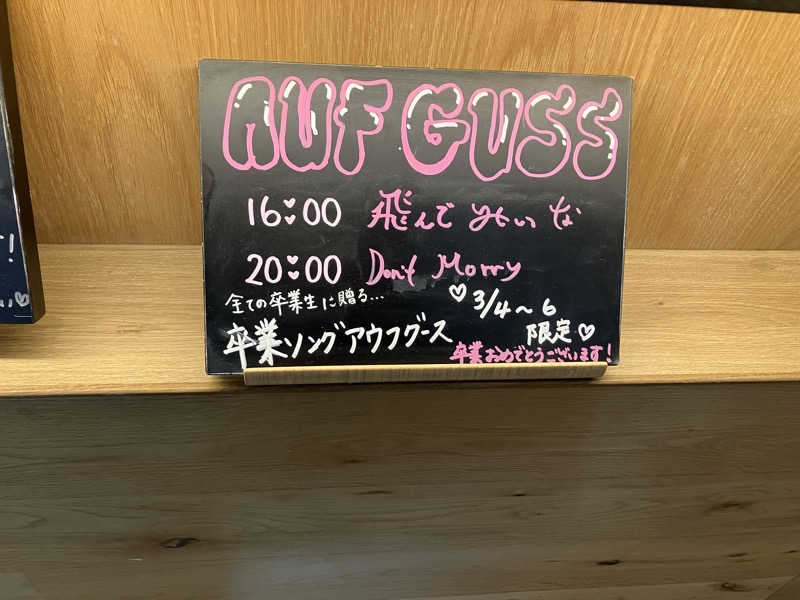 AUFGUSS
16:00 飛んでみいな
20:00 Don't Morry
全ての卒業生に贈る...
♡3/4~6
卒業ソングアウフグース
限定♡
卒業おめでとうございます!